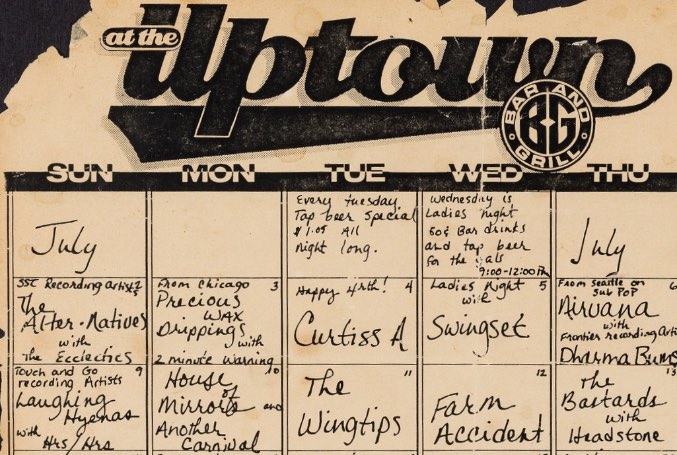 at the
Uptown
BAR AND
B-G
GRILL
SUN MON TUE WED THU
July
Every tuesday
Tap beer Special
$1.05 All
night long.
Wednesday is
Ladies night
50¢ Bar drinks
and tap beer
for the gals
9:00-12:00PM
July
SST Recording artists 2
The
Alter-Natives
with
The Ecclectics
From Chicago 3
Precious
WAX
Drippings
with
2 minute warning
Happy 4rth! 4
Curtiss A
Ladies Night 5
with
Swingset
From Seattle on 6
Sub Pop
Nirvana
with
Frontier recording Arti
Dharma Bums
Touch and Go 9
recording Artists
Laughing
Hyenas
with
Hrs/Hrs
House 10
of
Mirrors and
Another
Carnival
11
The
Wingtips
12
Farm
Accident
13
The
Bastards
with
Headstone